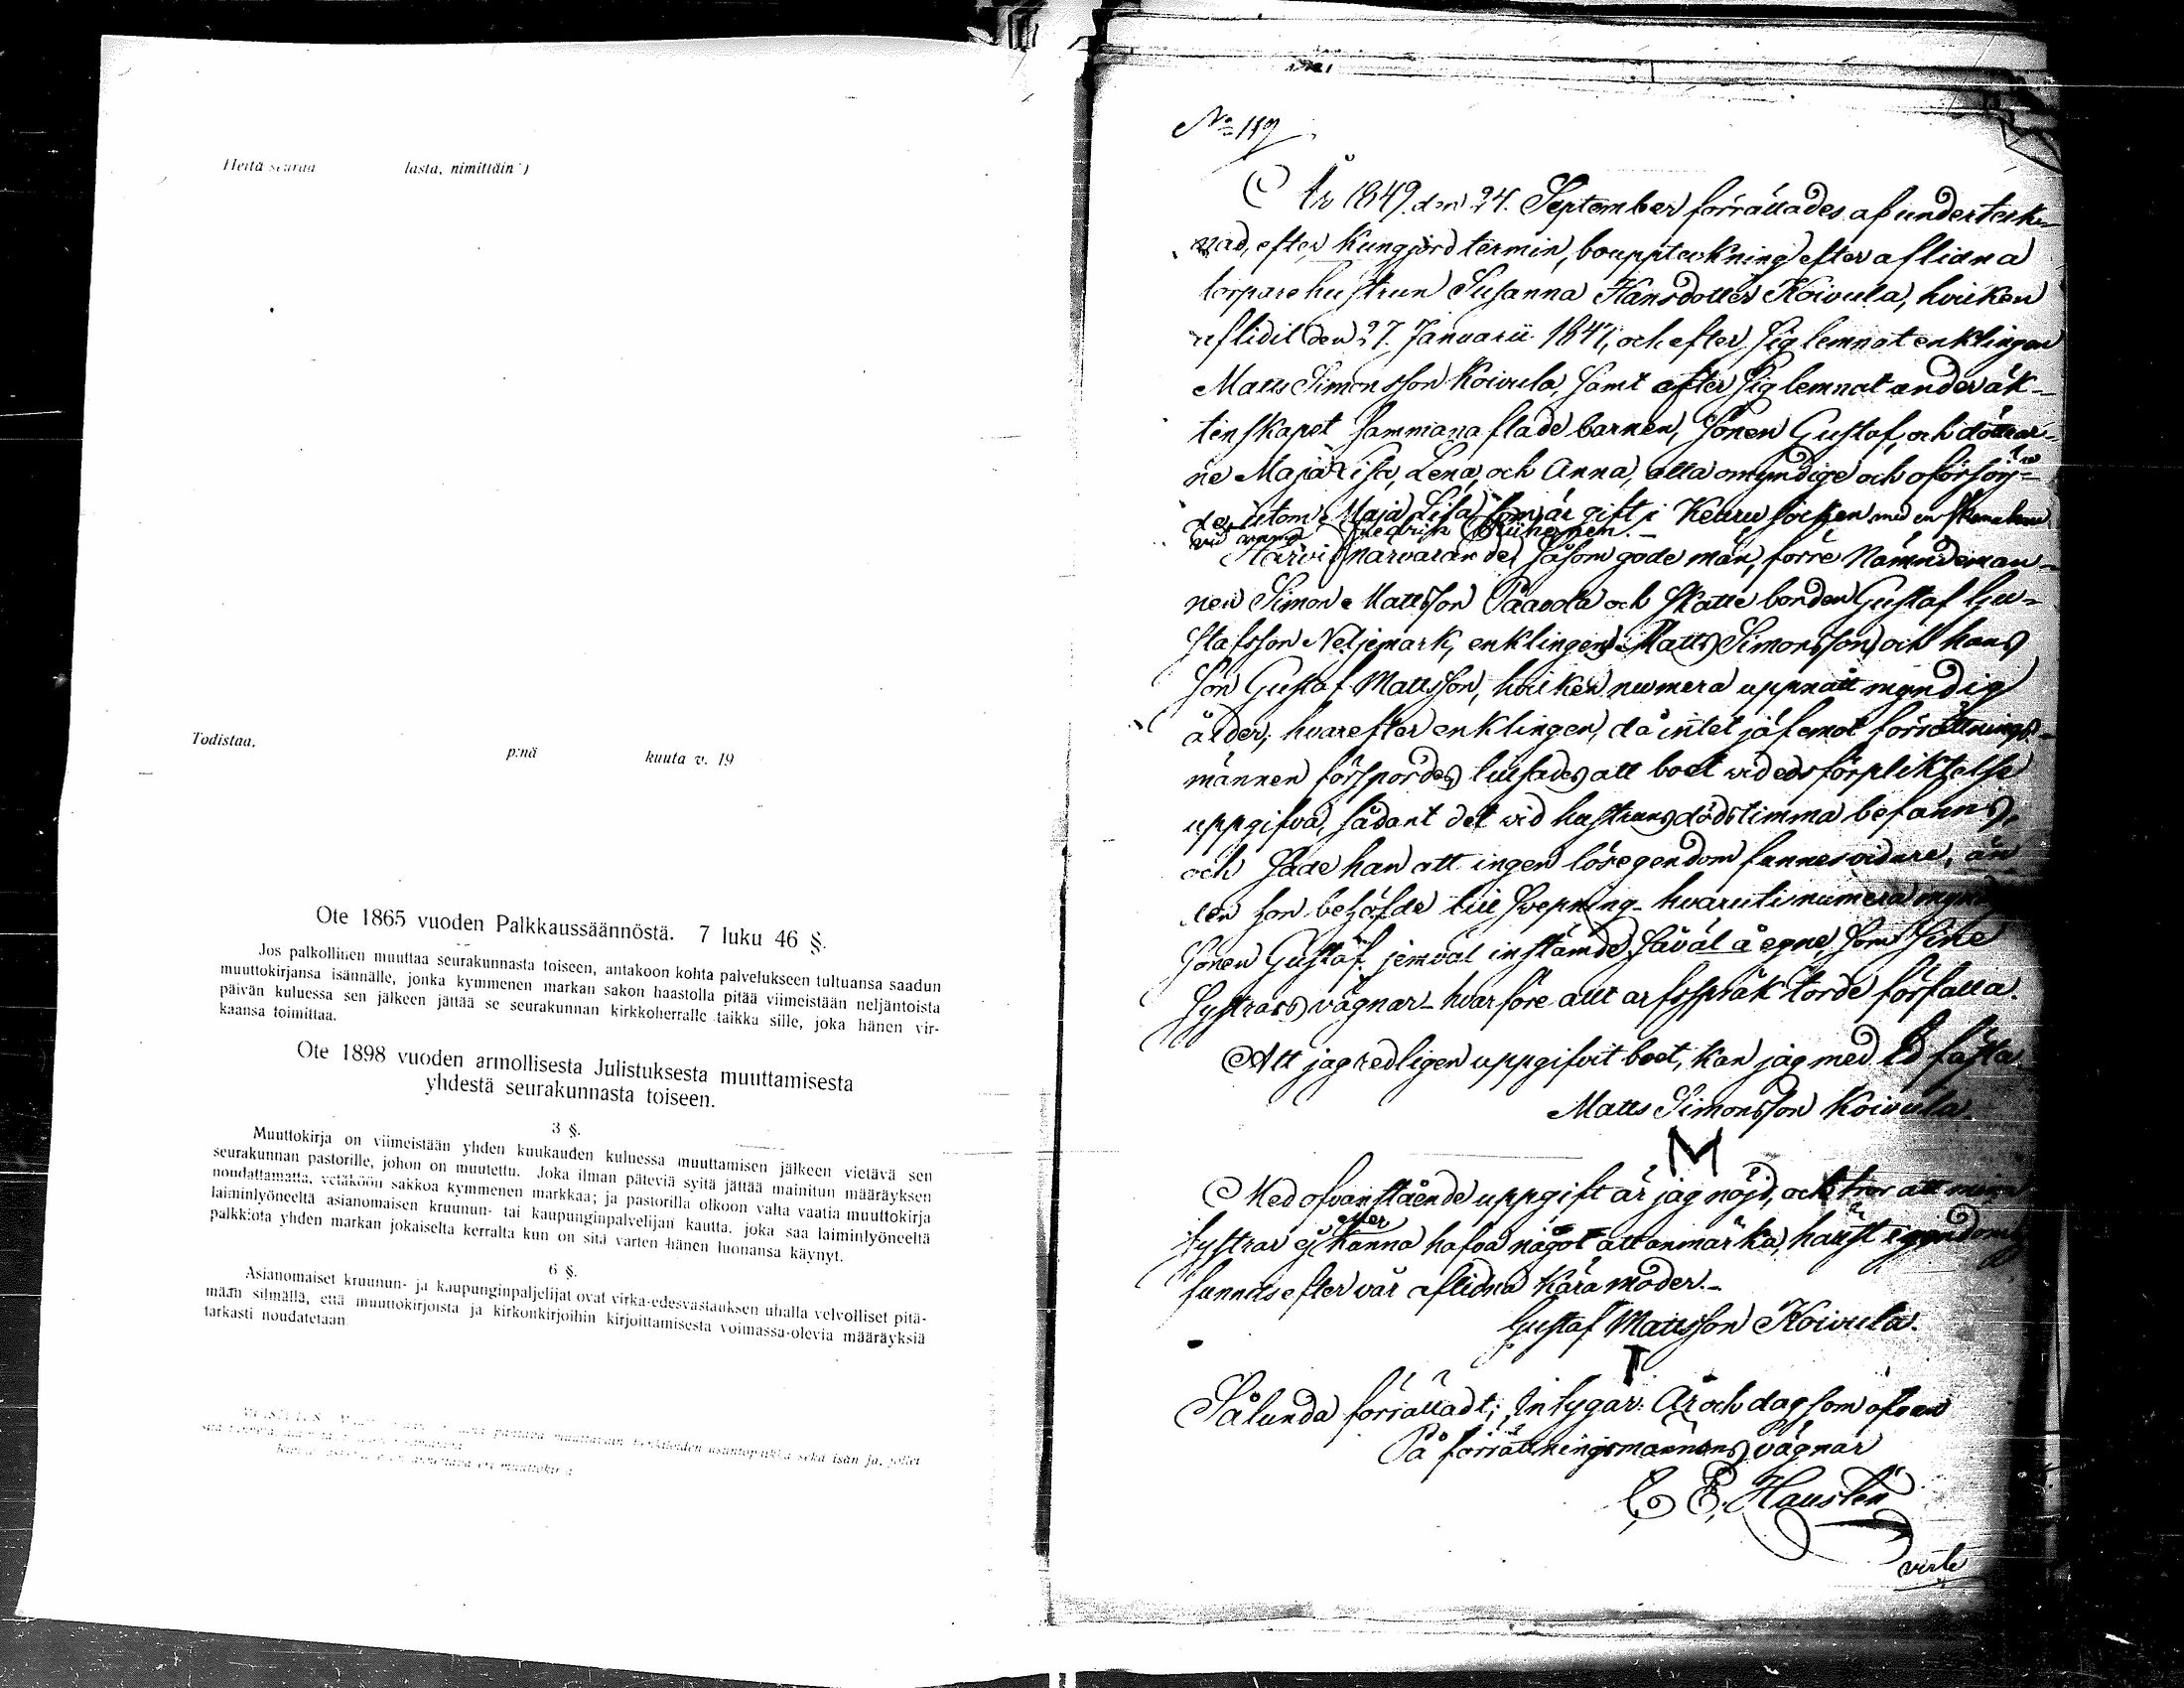 Heitä seuraa lasta, nimittäin*)
Todistaa,
p:nä kuuta v. 19
Ote 1865 vuoden Palkkaussäännöstä. 7 luku 46 §.
Jos palkollinen muuttaa seurakunnasta toiseen, antakoon kohta palvelukseen tultuansa saadun
muuttokirjansa isännälle, jonka kymmenen markan sakon haastolla pitää viimeistään neljäntoista
päivän kuluessa sen jälkeen jättää se seurakunnan kirkkoherralle taikka sille, joka hänen vir-
kaansa toimittaa.
Ote 1898 vuoden armollisesta Julistuksesta muuttamisesta
yhdestä seurakunnasta toiseen.
3 §.
Muuttokirja on viimeistään yhden kuukauden kuluessa muuttamisen jälkeen vietävä sen
seurakunnan pastorille, johon on muutettu. Joka ilman päteviä syitä jättää mainitun määräyksen
noudattamatta, vetäköön sakkoa kymmenen markkaa; ja pastorilla olkoon valta vaatia muuttokirja
laiminlyöneeltä asianomaisen kruunun- tai kaupunginpalvelijan kautta, joka saa laiminlyöneeltä
palkkiota yhden markan jokaiselta kerralta kun on sitä varten hänen luonansa käynyt.
6 §.
Asianomaiset kruunun- ja kaupunginpaljelijat ovat virka-edesvastauksen uhalla velvolliset pitä-
mään silmällä, että muuttokirjoista ja kirkonkirjoihin kirjoittamisesta voimassa-olevia määräyksiä
tarkasti noudatetaan
muuttavain asuntopaikka sekä isän ja, jollei
No 119
År 1849. den 24. September förrättades af underteck-
nad, efter kungjord termin, bouppteckning efter aflidna
torpare hustrun Susanna Hansdotter Koivula, hvilken
aflidit den 27. Januarii 1847, och efter sig lemnat enklingen
Matts Simonsson Koivula, samt efter sig lemnat under äk-
tenskapet sammanaflade barnen, Sonen Gustaf, och döttrar-
ne Maja Lisa, Lena, och Anna, alla omyndige och oförsörj-
de, utom Maja Lisa som är gift i Keuru socken med en
vid namn Fredrik
Härvid närvarande såsom gode män, förre Nämndeman-
nen Simon Mattsson Paavola och Skatte bonden Gustaf Gu-
stafsson Neljemark, enklingen Matts Simonsson och hans
Son Gustaf Mattsson, hvilken numera uppnått myndig
ålder; hvarefter enklingen, då intet jäf emot förrättnings-
männen förspordes tillsades att boet vid edsförpliktelse
uppgifva, sådant det vid hustruns dödstimma befanns,
och sade han att ingen lösegendom funnes vidare, än
den hon behöfde till svepning - hvaruti numera
Sonen Gustaf jemväl instämde, såväl å egne, som sine
Systrars vägnar - hvarföre allt arfsspråk torde förfalla.
Att jag redligen uppgifvit boet, kan jag med Ed fästa.
Matts Simonsson Koivula.
M
Med ofvanstående uppgift är jag nöjd, och tror att mina
systrar ej eller kunna hafva något att anmärka,
funnits efter vår aflidna Kära moder.-
Gustaf Mattsson Koivula.
T
Sålunda förrättadt; Intygar: År och dag som ofvan
På förrättningsmännens vägnar
C E. Hauslén
verte